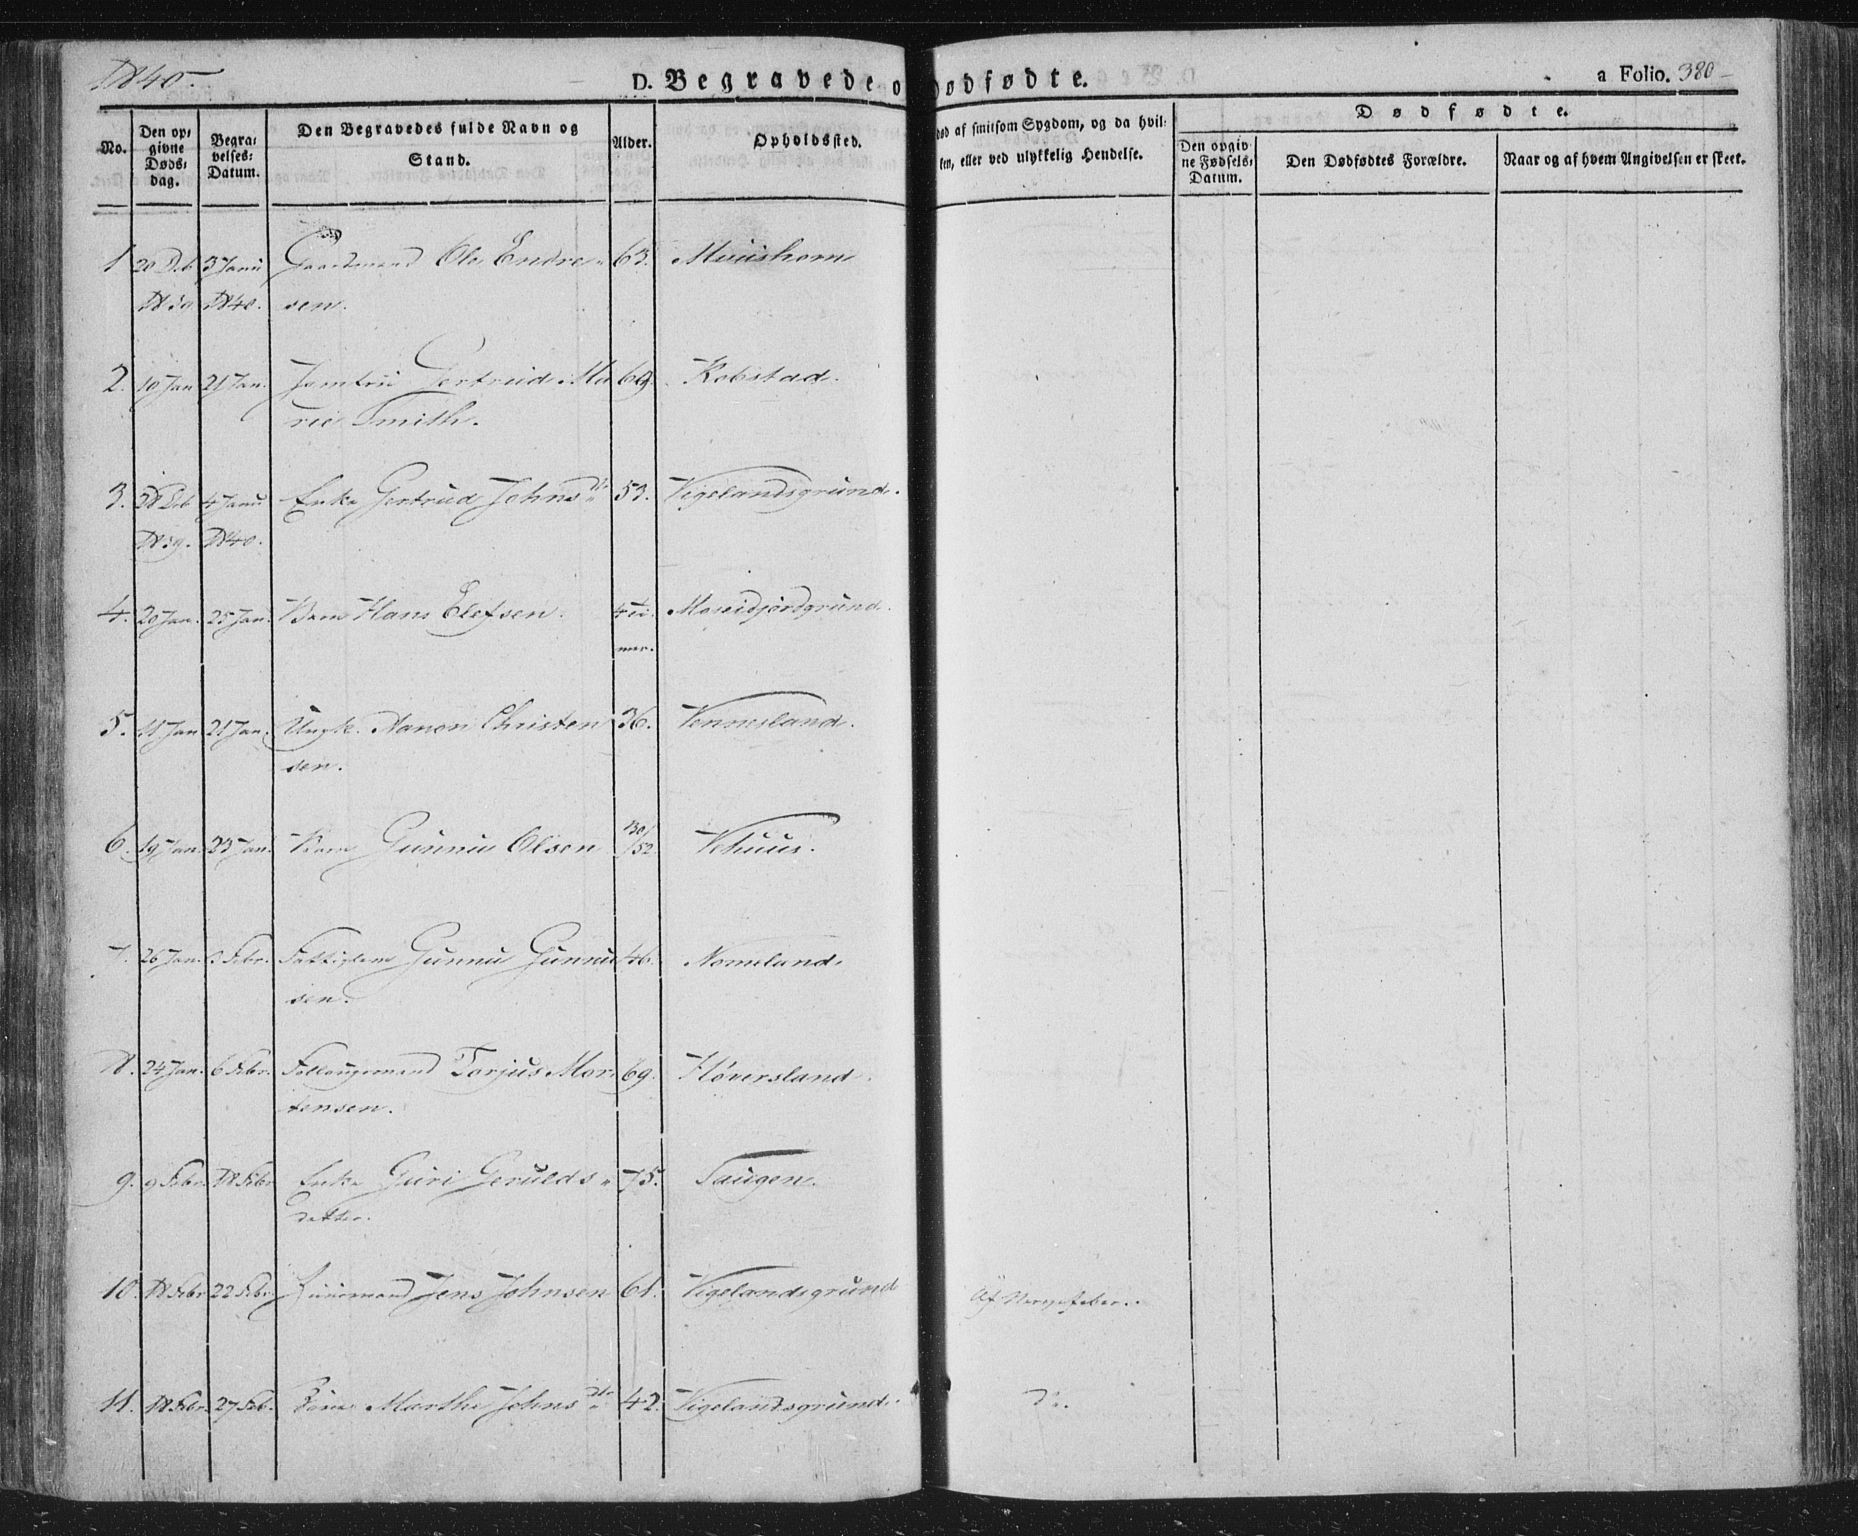 1840.
D. Begravede o
Dødfødte.
a Folio. 380
No.
Den op-
givne
Døds-
dag.
Begra-
velses-
Datum.
Den Begravedes fulde Navn og
Stand.
Alder.
Opholdssted.
død af smitsom Sygdom, og da hvil-
ken, eller ved ulykkelig Hendelse.
Dødfødte.
Den opgiv-
ne Fødsels-
Datum.
Den Dødfødtes Forældre.
Naar og af hvem Angivelsen er skeet.
1 3 Janu Gaardmand Ole Endre- 63.
1840. sen.
2. 10 Jan 21 Jan. Jomfru Gertruid Ma 69. Kobstad.
rie Smith.
3. 4 Janu Enke Gertrud Johnsdtr 53. Vigelandsgrund.
1839. 1840.
4. 20 Jan. 25 Jan. Barn Hans Elefsen. 4 ti- Moseidjordgrund.
mer.
5. 11 Jan 21 Jan. Ungk. Aanon Christen 36. Vennesland.
sen.
6. 19 Jan. 23 Jan. Barn Gunnu Olsen 30/52. Vehuus.
7. 26 Jan. Febr. Fattiglem Gunnu Gunnu 46. Nomeland.
sen.
8. 24 Jan. 6 Febr. Føllaugsmand Torjus Mor 69. Høversland.
tensen.
9. 9 Febr. 18 Febr Enke Guri Gerulds- 75. Taugen.
datter.
10. 18 Febr 22 Febr Huusmand Jens Johnsen 61. Vigelandsgrund Af Nervefeber.
11. 18 Febr. 27 Feb. Kone Marthe Johnsdtr 42. Vigelandsgrund. Do.